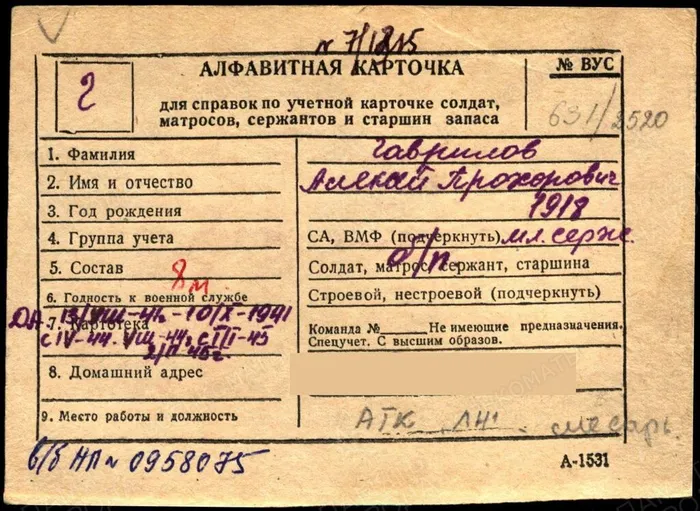 № 7/1215
АЛФАВИТНАЯ КАРТОЧКА
№ ВУС
2
для справок по учетной карточке солдат,
матросов, сержантов и старшин запаса
631/2520
1. Фамилия Гаврилов
2. Имя и отчество Алексей Прохорович
3. Год рождения 1918
4. Группа учета СА, ВМФ (подчеркнуть) мл. серж.
5. Состав Солдат, матрос, сержант, старшина
б/п.
8 м
6. Годность к военной службе Строевой, нестроевой (подчеркнуть)
7. Картотека Команда № Не имеющие предназначения.
Спецучет. С высшим образов.
ДА - 13/VIII-41г - 10/IX-1941
с IV-44. VIII-44г с II/I-45
8. Домашний адрес
9. Место работы и должность АТК слесарь
в/б НП № 0958075
А-1531